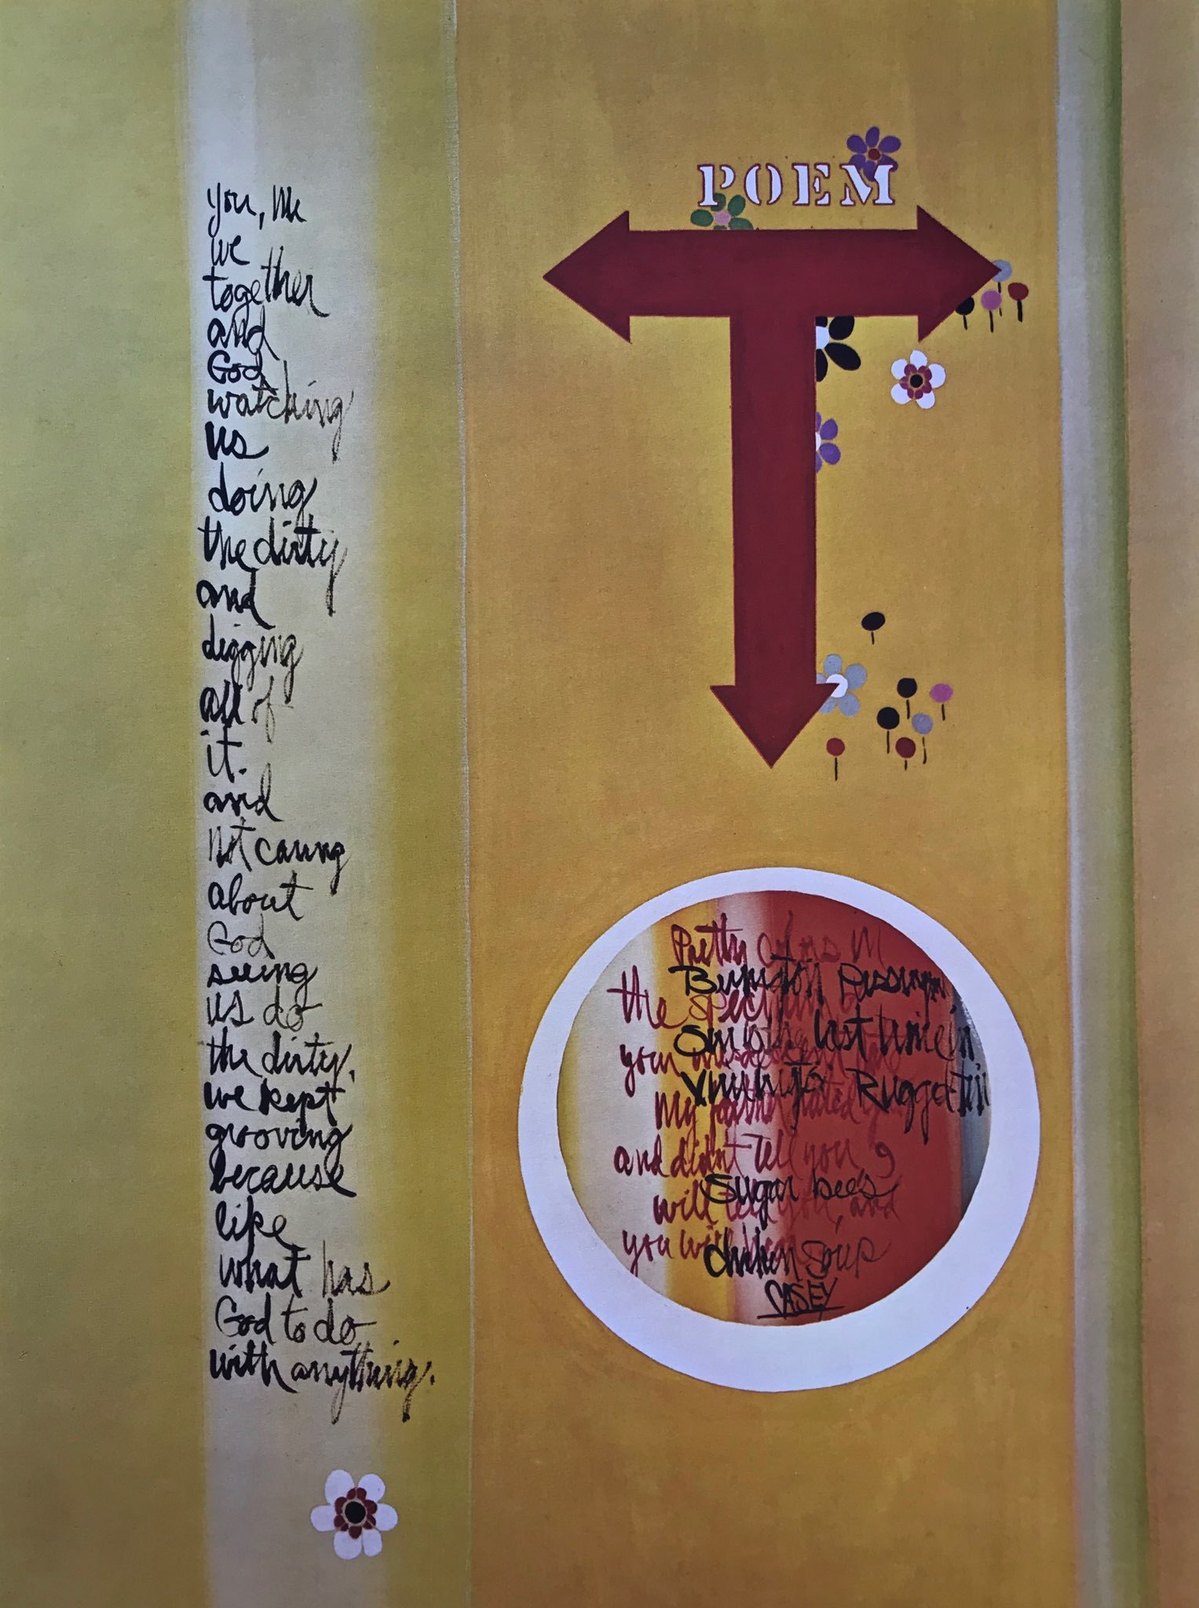 you, me
we
together
and
God
watching
us
doing
the dirty
and
digging
all of
it.
and
Not caring
about
God
seeing
us do
the dirty.
we kept
grooving
because
like
what has
God to do
with anything.
POEM
Pretty colors in
the spectrum
your
My
and didn't tell you
will tell you, and
you will
last time in
Sugar bees
chicken soup
CASEY